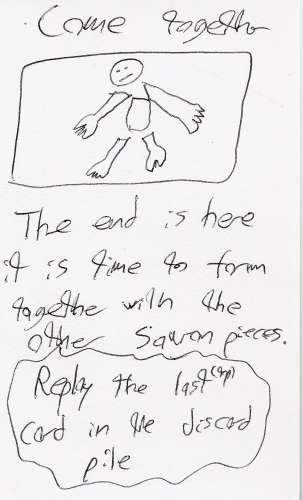 Come together
The end is here
it is time to form
together with the
other Sawon pieces.
Replay the last (top)
card in the discard
pile